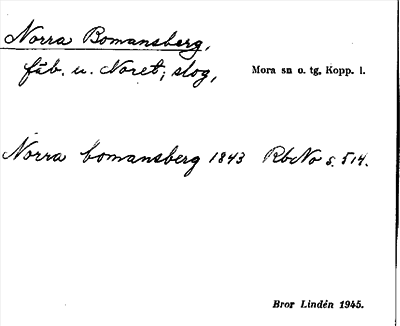 Norra Bomansberg,
fäb. u. Noret; skog,
Mora sn o. tg, Kopp. l.
Norra bomansberg 1843 RbNo s. 514.
Bror Lindén 1945.